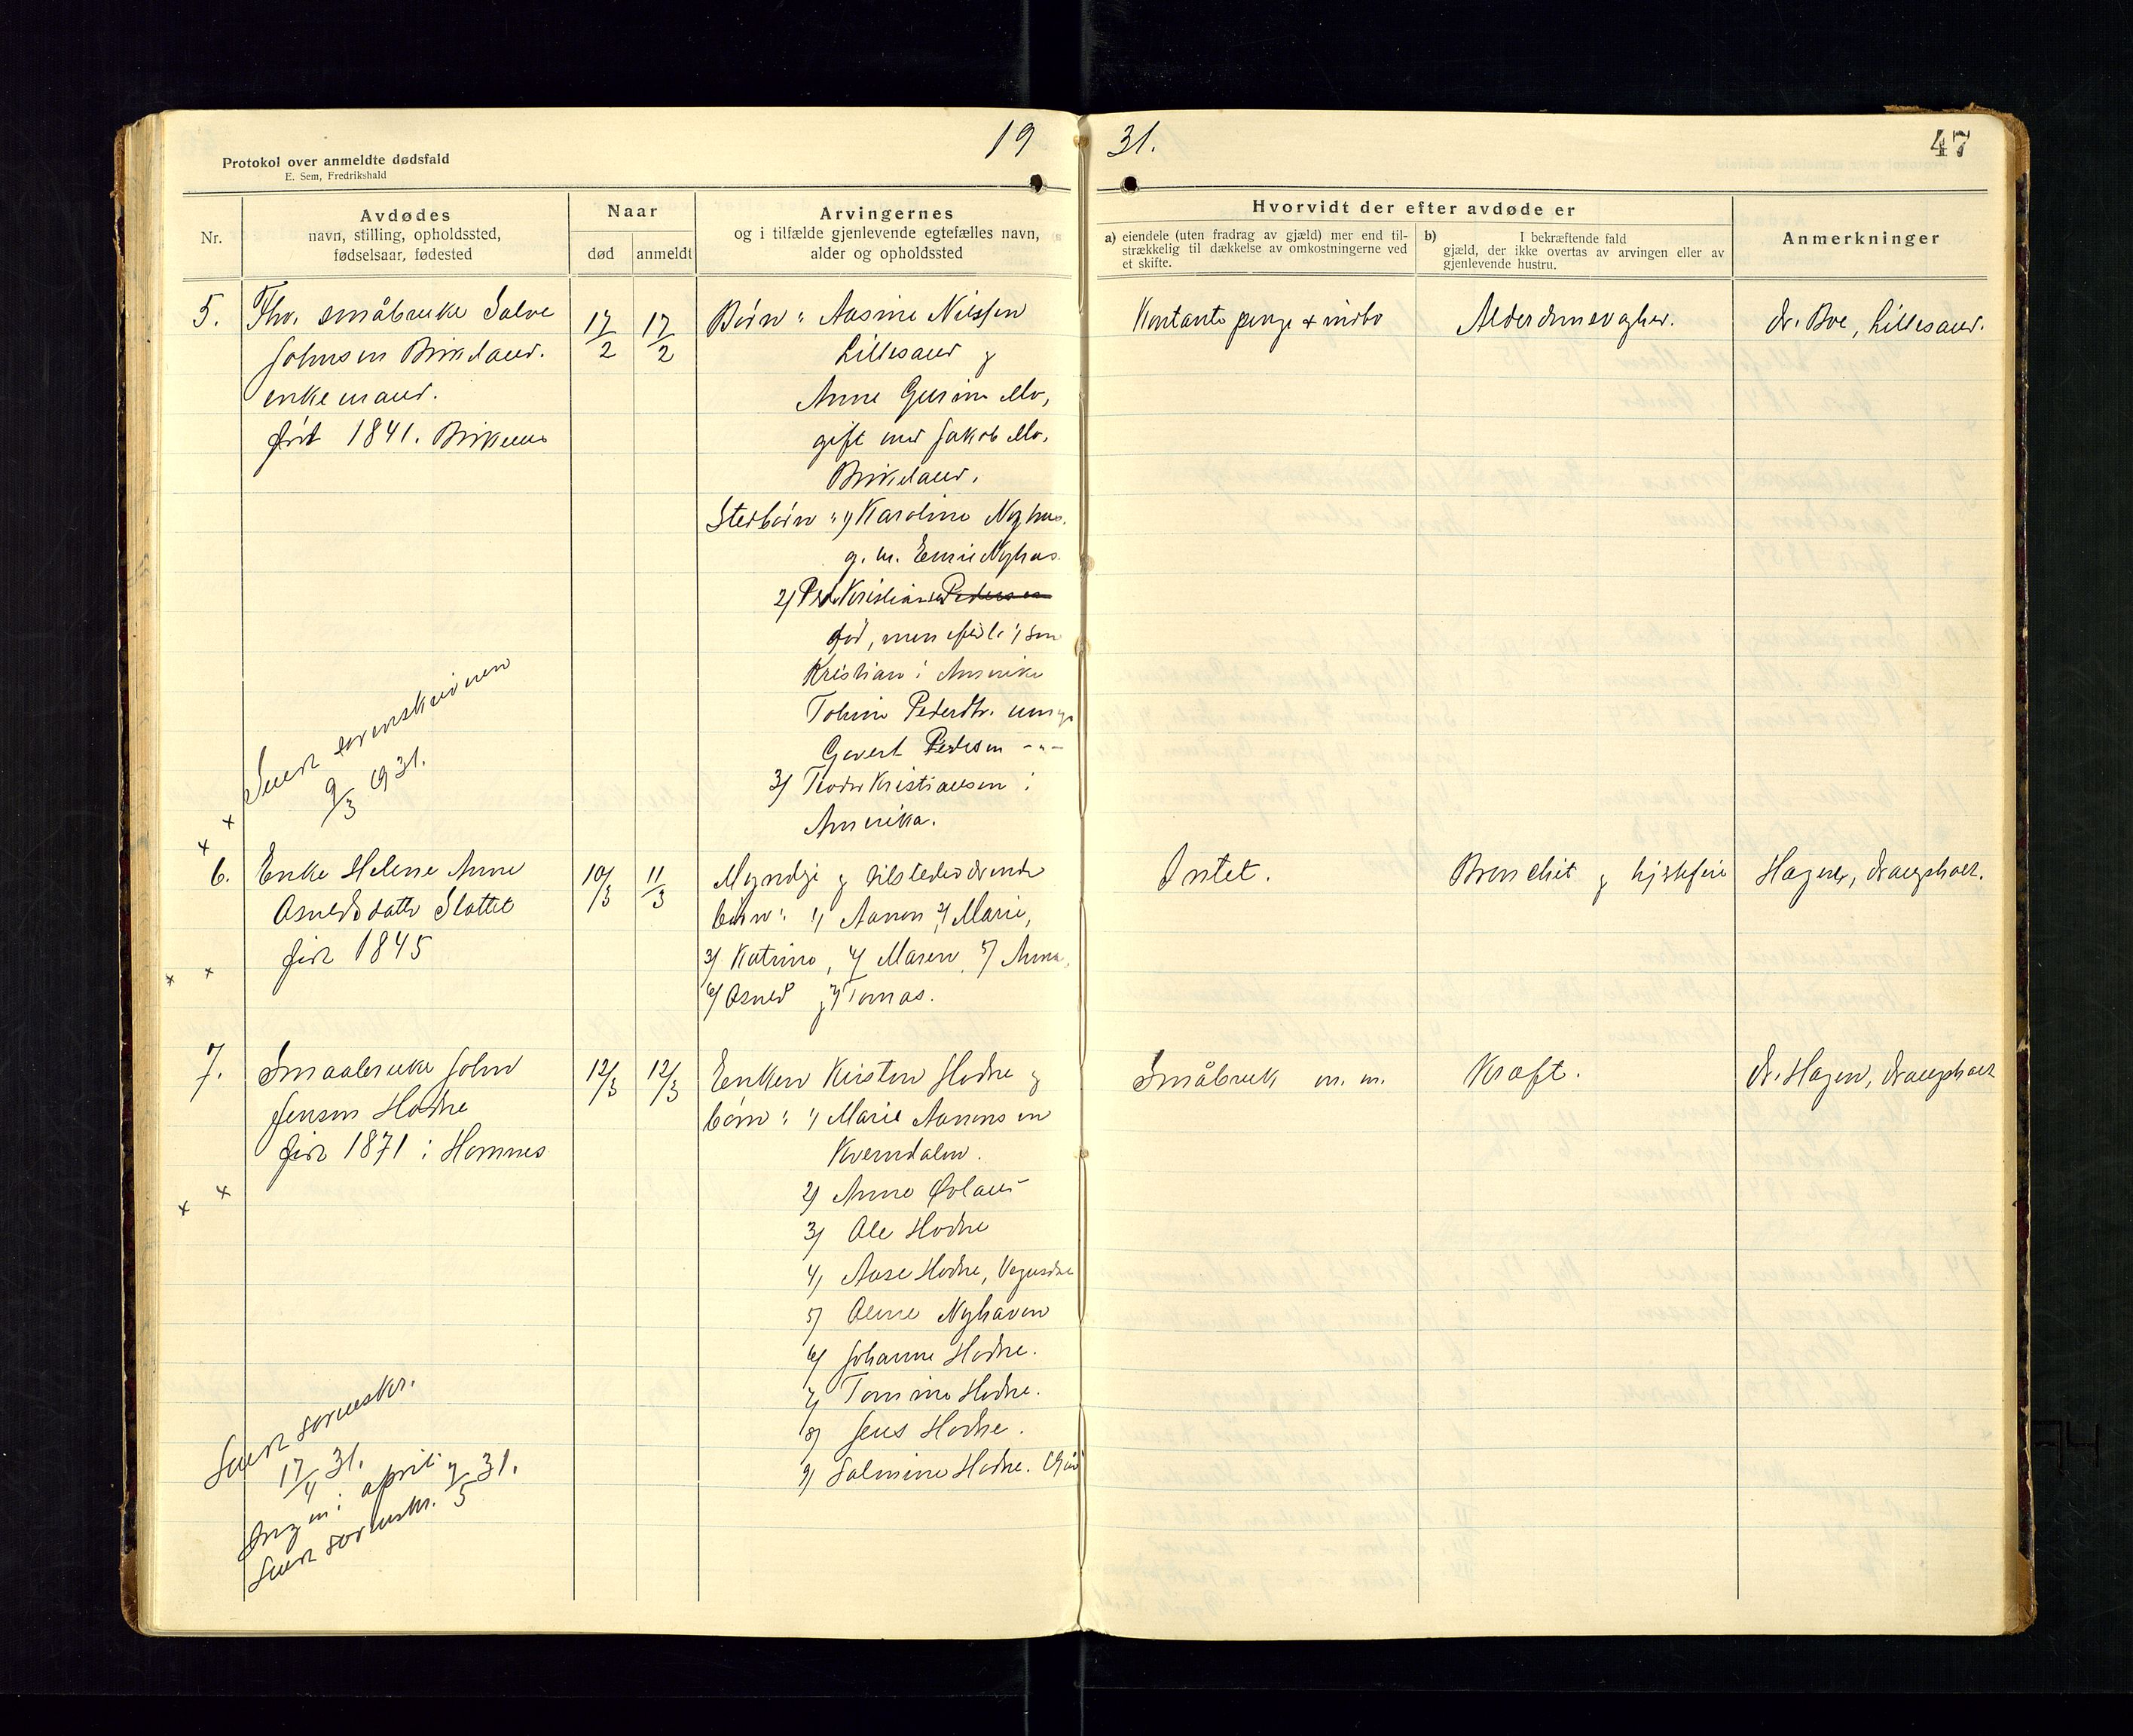 19 31.
47
Protokol over anmeldte dødsfald
E. Sem, Fredrikshald
Nr.
Avdødes
navn, stilling, opholdssted,
fødselsaar, fødested
Naar
død
anmeldt
Arvingernes
og i tilfælde gjenlevende egtefælles navn,
alder og opholdssted
Hvorvidt der efter avdøde er
a) eiendele (uten fradrag av gjæld) mer end til-
strækkelig til dækkelse av omkostningerne ved
et skifte.
b) I bekræftende fald
gjæld, der ikke overtas av arvingen eller av
gjenlevende hustru.
Anmerkninger
5.
Fhv. småbruker Salve
Johnsen Birkeland.
enkemand.
født 1841. Birkenes
17/2
17/2
Børn: Aasine Nilssen
Lillesand og
Anne Gurine Mo,
gift med Jakob Mo,
Birkeland.
Stedbørn: 1) Karoline Nyhus.
g. m. Nyhus
2) Kristiansen Pedersen
død, men
Kristian i Amerika
Tobine Pedersdtr.
Pedersen -"-
3) Kristiansen i
Amerika.
Kontante penge + indbo
Alderdomssvaghet.
dr. Boe, Lillesand.
Sendt sorenskriveren
9/3 1931.
6.
Enke Helene Anne
Osmundsdatter Slottet
født 1845
10/3
11/3
Myndige og tilstedeværende
børn: 1) Aanon 2) Marie,
3) Katrine, 4) Maren, 5) Anna,
6) Osmund og 7) Tomas.
Intet.
Bronchit og hjertefeil
Hagen, Drangsholt.
7.
Smaabruker John
Jensen Hodne
født 1871 i Homnes
12/3
12/3
Enken Kirsten Hodne og
børn: 1) Marie Aanonsen
Kverndalen.
2) Anne
3) Ole Hodne
4) Aase Hodne, Vegusdal
5) Nyhaven
6) Johanne Hodne.
7) Tomine Hodne.
8) Jens Hodne.
9) Salmine Hodne.
Småbruk m. m.
Kræft.
dr. Hagen, Drangsholt
Sendt sorenskr.
17/4 31.
Ingen i april
Sendt sorenskr. 7/5 31.